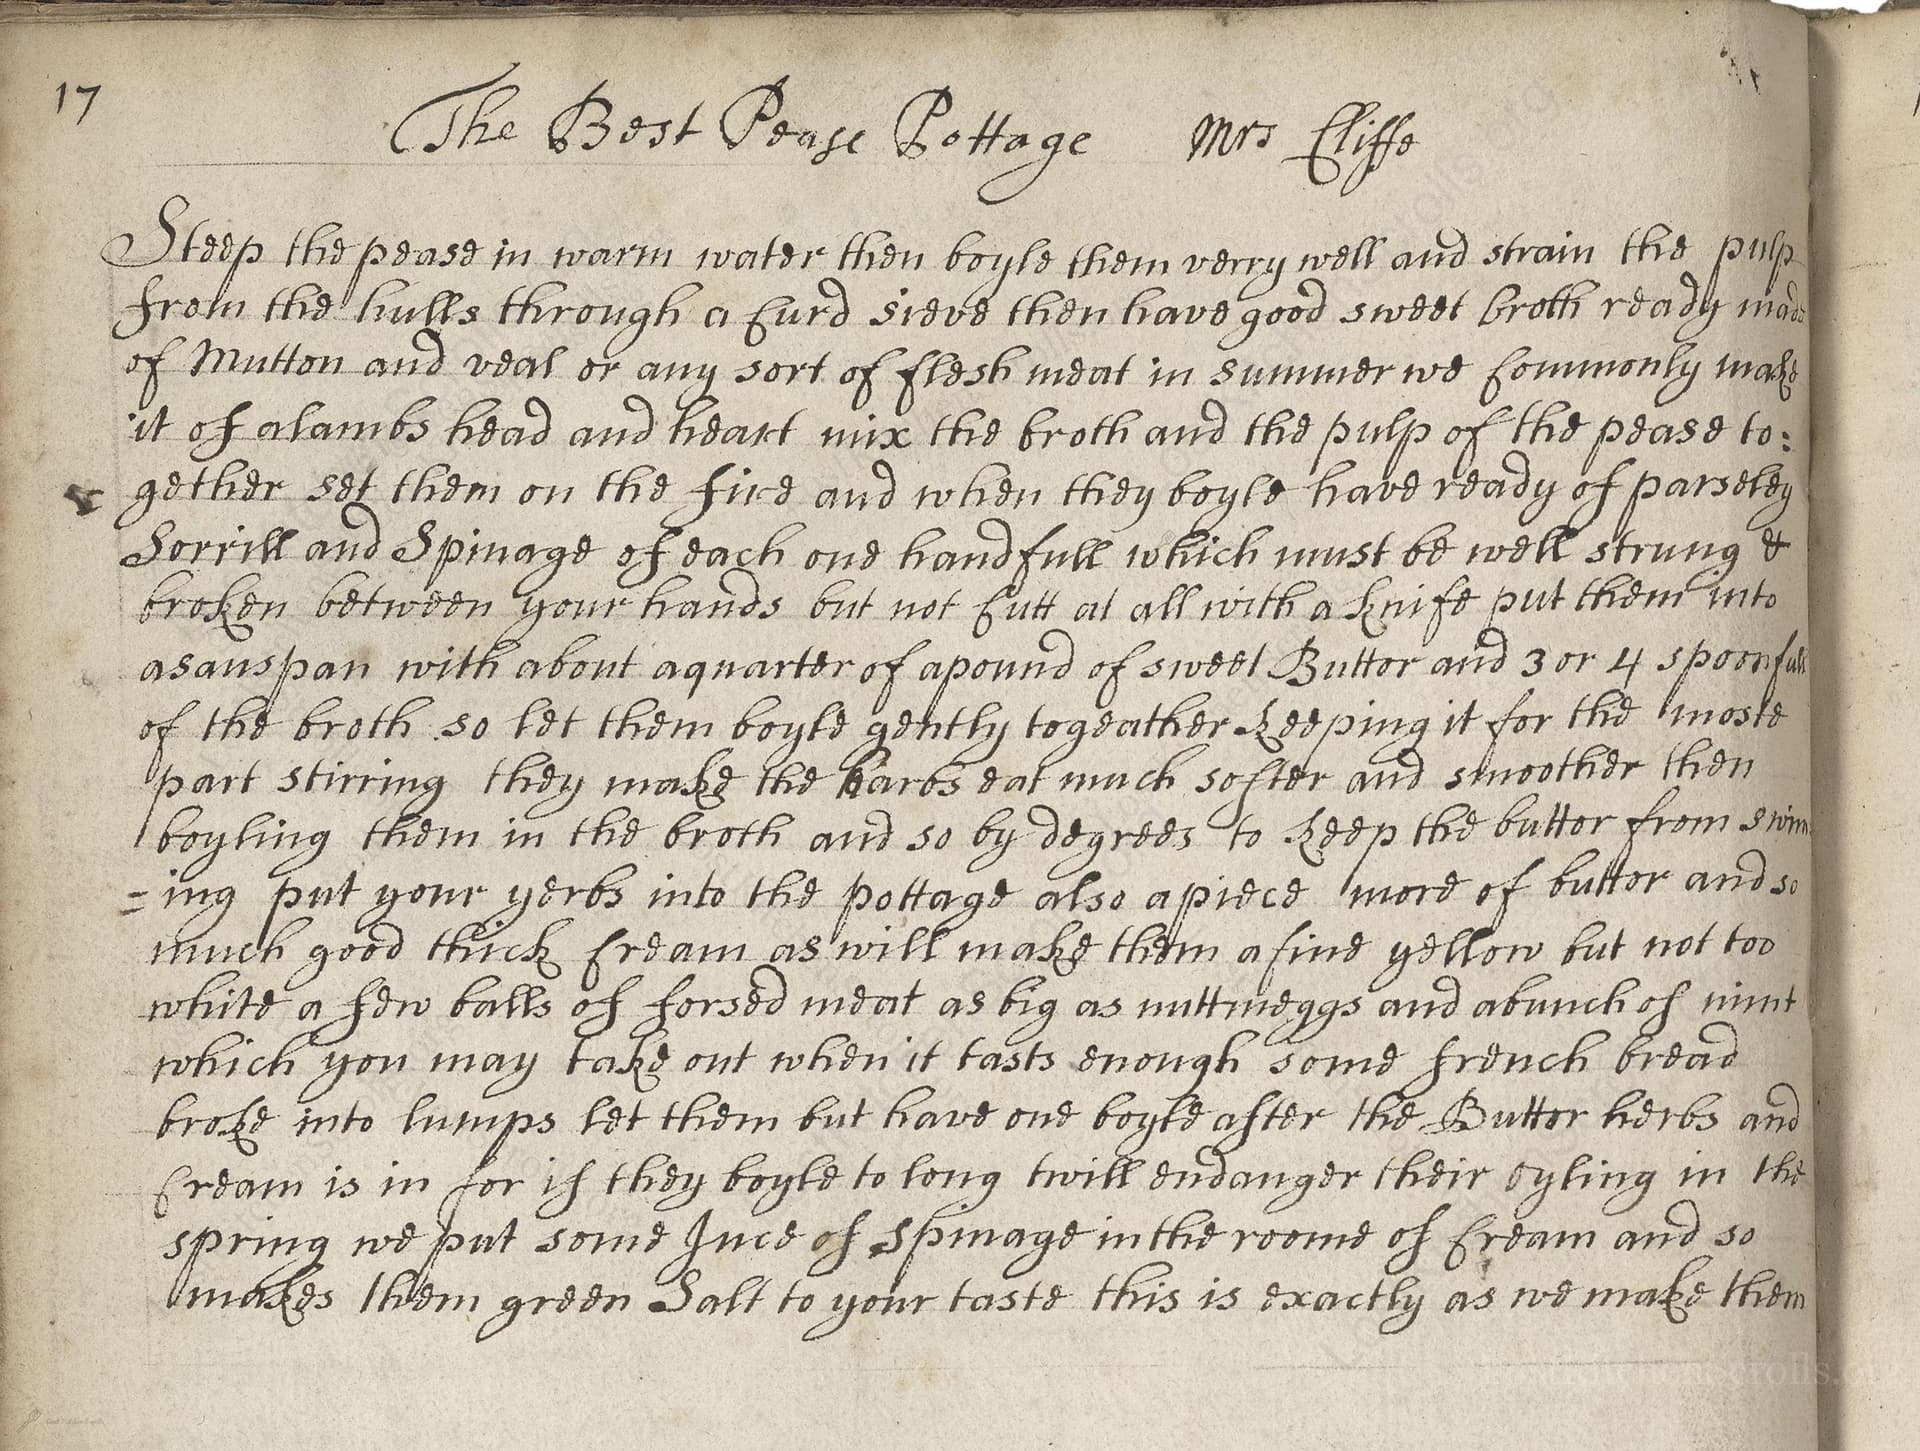 17
The Best Pease Pottage Mrs Cliffe
Steep the pease in warm water then boyle them verry well and strain the pulp
from the hulls through a Curd sieve then have good sweet broth ready made
of Mutton and veal or any sort of flesh meat in summer we Commonly make
it of a lambs head and heart mix the broth and the pulp of the pease to:
gether set them on the fire and when they boyle have ready of parseley
Sorrill and Spinage of each one handfull which must be well strung &
broken between your hands but not Cutt at all with a knife put them into
a sauspan with about a quarter of a pound of sweet Buttor and 3 or 4 spoonfull
of the broth so let them boyle gently togeather keeping it for the moste
part stirring they make the harbs eat much softer and smoother then
boyling them in the broth and so by degrees to keep the buttor from swim
=ing put your yerbs into the pottage also a piece more of buttor and so
much good thick Cream as will make them a fine yellow but not too
white a few balls of forsed meat as big as nuttmeggs and a bunch of mint
which you may take out when it tasts enough some french bread
broke into lumps let them but have one boyle after the Buttor herbs and
Cream is in for if they boyle to long twill endanger their oyling in the
spring we put some Juce of Spinage in the roome of Cream and so
makes them green Salt to your taste this is exactly as we make them